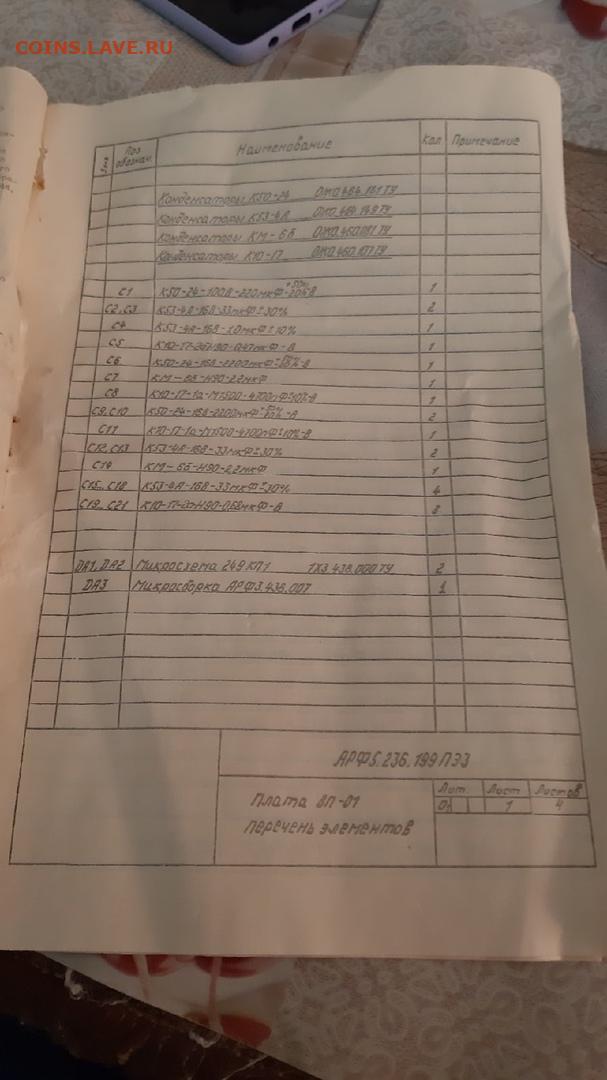 COINS.LAVE.RU
Зона Поз. обознач. Наименование Кол Примечание
Конденсаторы К50-24 ОЖ0.464.181ТУ
Конденсаторы К53-4А ОЖ0.464.149ТУ
Конденсаторы КМ-6Б ОЖ0.460.061ТУ
Конденсаторы К10-17 ОЖ0.460.107ТУ
С1 К50-24-100В-220мкФ В 1
С2,С3 К53-4А-16В-33мкФ±30% 2
С4 К53-4А-16В-1,0мкФ±10% 1
С5 К10-17-2б-Н90-0,47мкФ-В 1
С6 К50-24-16В-2200мкФ -В 1
С7 КМ-6Б-Н90-2,2мкФ 1
С8 К10-17-1а-М1500-4700пФ±10%-В 1
С9,С10 К50-24-16В-2200мкФ -В 2
С11 К10-17-1а-М1500-4700пФ±10%-В 1
С12,С13 К53-4А-16В-33мкФ±30% 2
С14 КМ-6Б-Н90-2,2мкФ 1
С15...С18 К53-4А-16В-33мкФ±30% 4
С19...С21 К10-17-2б-Н90-0,68мкФ-В 3
DA1,DA2 Микросхема 249КП1 ТХ3.438.000ТУ 2
DA3 Микросборка АРФ3.438.007 1
АРФ5.236.199ПЭ3
Плата ВП-01
перечень элементов
Лит. Лист Листов
О1 1 4